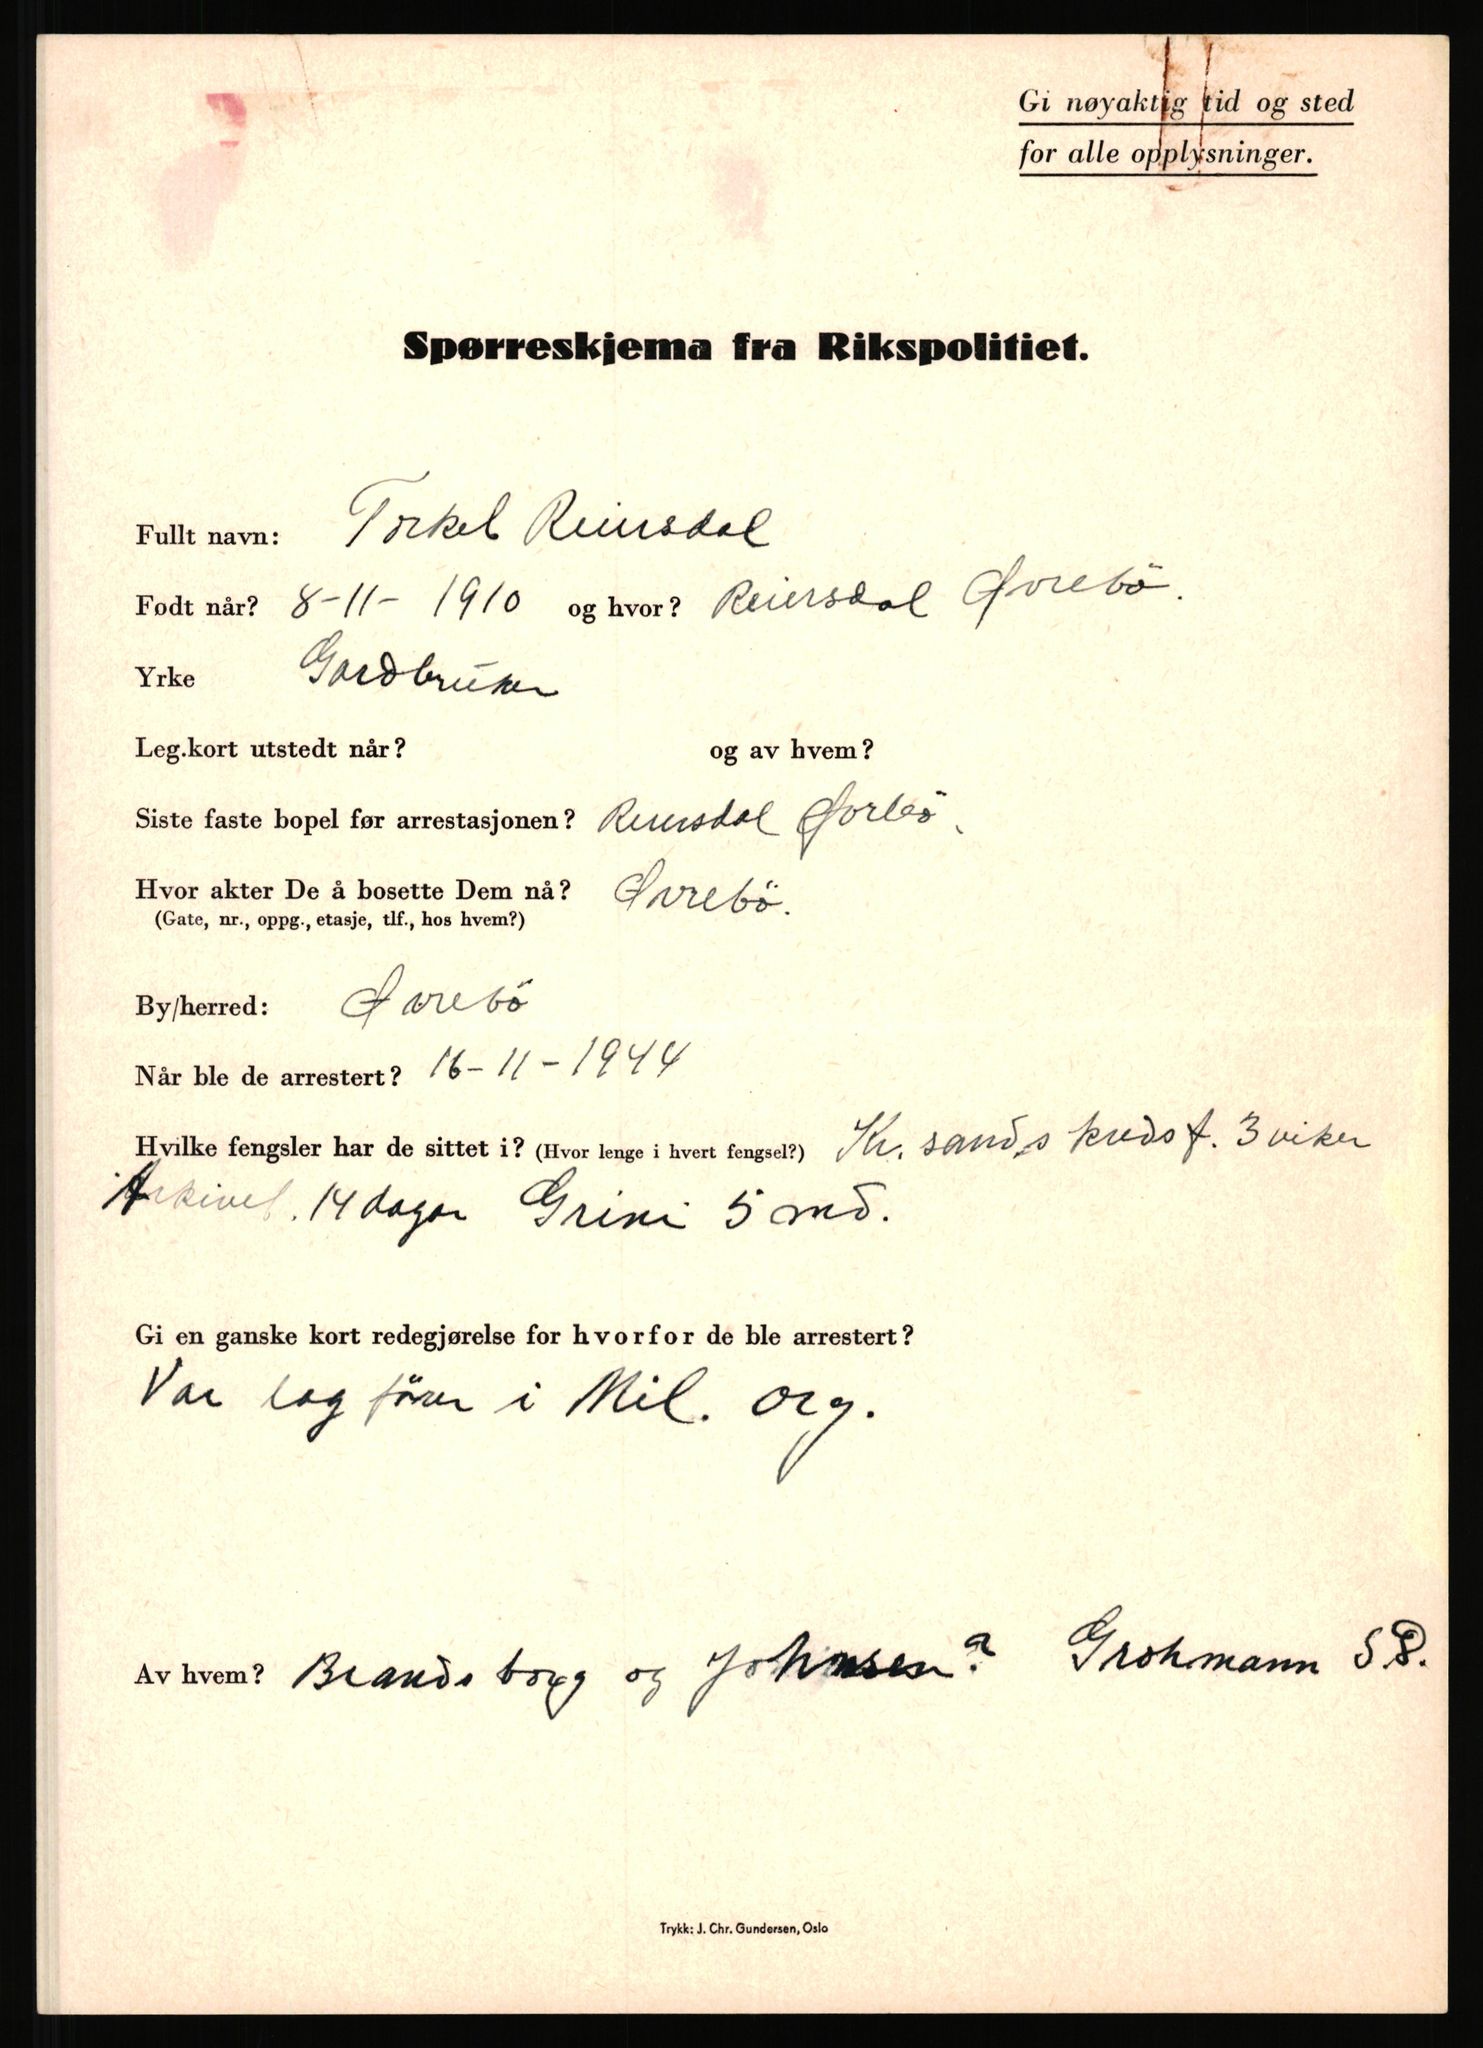 Gi nøyaktig tid og sted
for alle opplysninger.
Spørreskjema fra Rikspolitiet.
Fullt navn: Torkel Reiersdal
Født når? 8-11-1910 og hvor? Reiersdal Øvrebö.
Yrke Gardbruker
Leg.kort utstedt når? og av hvem?
Siste faste bopel før arrestasjonen? Reiersdal Øvrebö.
Hvor akter De å bosette Dem nå? Øvrebö.
(Gate, nr., oppg., etasje, tlf., hos hvem?)
By/herred: Øvrebö
Når ble de arrestert? 16-11-1944
Hvilke fengsler har de sittet i? (Hvor lenge i hvert fengsel?) Kr.sands kredsf. 3 viker
Arkivet. 14 dagar Grini 5 md.
Gi en ganske kort redegjørelse for hvorfor de ble arrestert?
Var lag förer i Mil. org.
Av hvem? Brandsborg og Johnsen? Grohmann S.P.
Trykk: J. Chr. Gundersen, Oslo